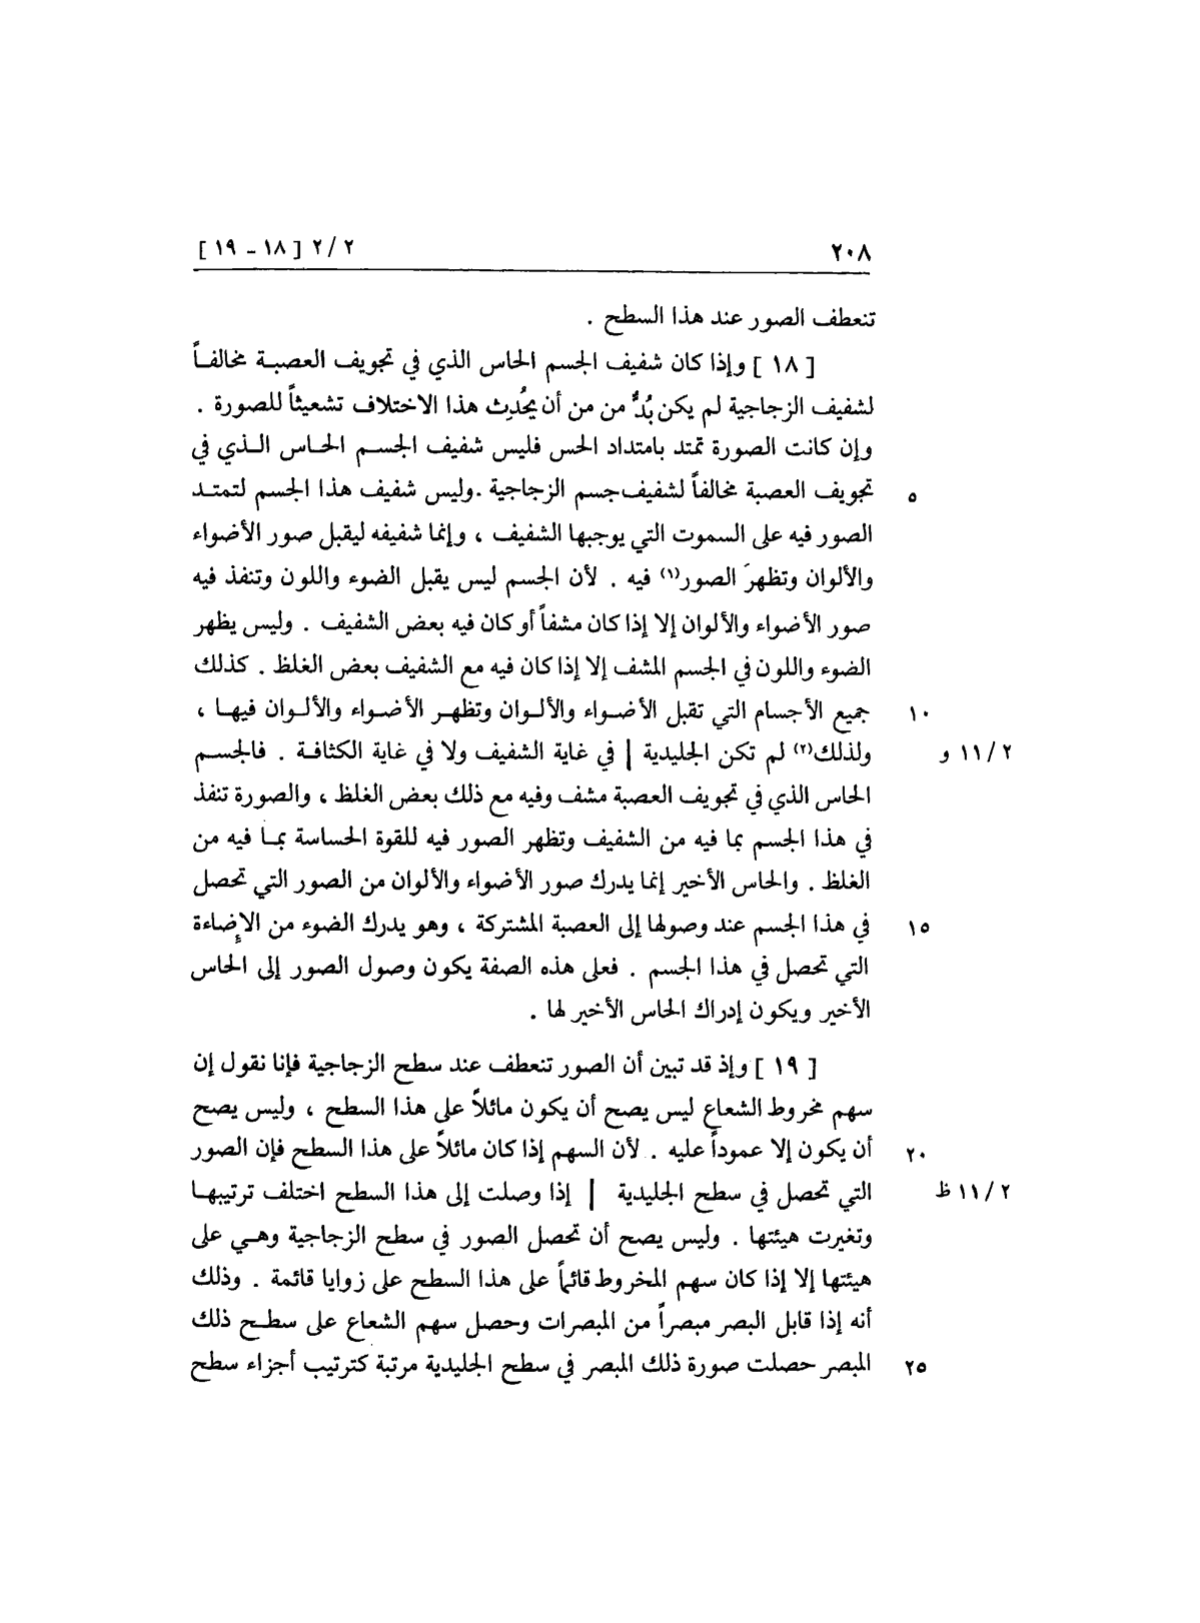 ٢٠٨
٢/٢ [ ١٨ - ١٩ ]
تنعطف الصور عند هذا السطح .
[ ١٨ ] وإذا كان شفيف الجسم الحاس الذي في تجويف العصبة مخالفاً
لشفيف الزجاجية لم يكن بُدٌّ من من أن يُحْدِث هذا الاختلاف تشعيثاً للصورة .
وإن كانت الصورة تمتد بامتداد الحس فليس شفيف الجسم الحاس الذي في
٥ تجويف العصبة مخالفاً لشفيف جسم الزجاجية . وليس شفيف هذا الجسم لتمتد
الصور فيه على السموت التي يوجبها الشفيف ، وإنما شفيفه ليقبل صور الأضواء
والألوان وتظهرَ الصور(١) فيه . لأن الجسم ليس يقبل الضوء واللون وتنفذ فيه
صور الأضواء والألوان إلا إذا كان مشفاً أو كان فيه بعض الشفيف . وليس يظهر
الضوء واللون في الجسم المشف إلا إذا كان فيه مع الشفيف بعض الغلظ . كذلك
١٠ جميع الأجسام التي تقبل الأضواء والألوان وتظهر الأضواء والألوان فيها ،
٢/١١ و ولذلك(٢) لم تكن الجليدية | في غاية الشفيف ولا في غاية الكثافة . فالجسم
الحاس الذي في تجويف العصبة مشف وفيه مع ذلك بعض الغلظ ، والصورة تنفذ
في هذا الجسم بما فيه من الشفيف وتظهر الصور فيه للقوة الحساسة بما فيه من
الغلظ . والحاس الأخير إنما يدرك صور الأضواء والألوان من الصور التي تحصل
١٥ في هذا الجسم عند وصولها إلى العصبة المشتركة ، وهو يدرك الضوء من الإضاءة
التي تحصل في هذا الجسم . فعلى هذه الصفة يكون وصول الصور إلى الحاس
الأخير ويكون إدراك الحاس الأخير لها .
[ ١٩ ] وإذ قد تبين أن الصور تنعطف عند سطح الزجاجية فإنا نقول إن
سهم مخروط الشعاع ليس يصح أن يكون مائلاً على هذا السطح ، وليس يصح
٢٠ أن يكون إلا عموداً عليه . لأن السهم إذا كان مائلاً على هذا السطح فإن الصور
٢/١١ ظ التي تحصل في سطح الجليدية | إذا وصلت إلى هذا السطح اختلف ترتيبها
وتغيرت هيئتها . وليس يصح أن تحصل الصور في سطح الزجاجية وهي على
هيئتها إلا إذا كان سهم المخروط قائماً على هذا السطح على زوايا قائمة . وذلك
أنه إذا قابل البصر مبصراً من المبصرات وحصل سهم الشعاع على سطح ذلك
٢٥ المبصر حصلت صورة ذلك المبصر في سطح الجليدية مرتبة كترتيب أجزاء سطح